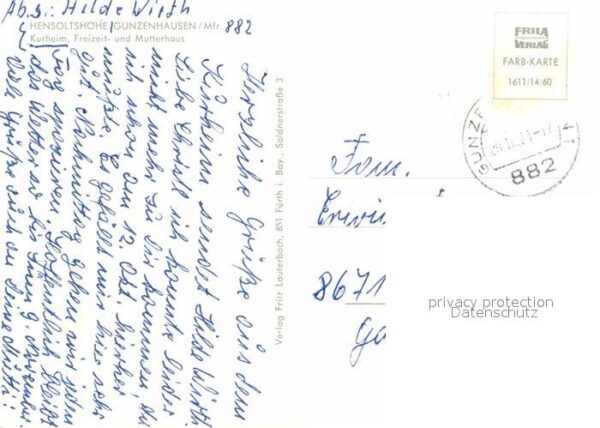 Abs.: Hilde Wirth
HENSOLTSHÖHE GUNZENHAUSEN / Mfr. 882
Kurheim, Freizeit- und Mutterhaus
Herzliche Grüße aus dem
Kurheim sendet Hilde Wirth.
Liebe Christl ich konnte leider
nicht mehr zu Dir kommen da
ich schon am 12. Okt. hierher
mußte. Es gefällt mir hier sehr
gut. Nachmittag gehen wir jeden
Tag spazieren. Hoffentlich bleibt
das Wetter so bis zum 9. November.
Viele Grüße auch an Deine Mutti!
Verlag Fritz Lauterbach, 851 Fürth i. Bay., Soldnerstraße 3
FRILA
VERLAG
FARB-KARTE
1611/14/60
GUNZ
882
Fam.
Erwin
8671
privacy protection
Datenschutz